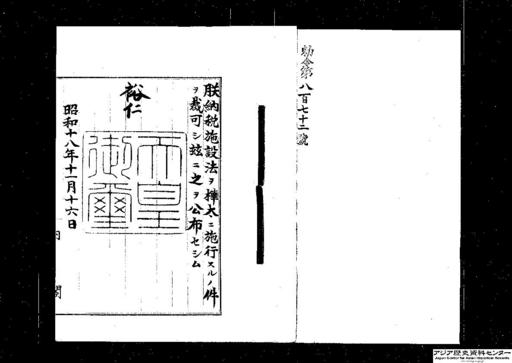 勅令第八百七十二號
朕納税施設法ヲ樺太ニ施行スルノ件
ヲ裁可シ茲ニ之ヲ公布セシム
裕仁
天皇御璽
昭和十八年十一月十六日
内閣
アジア歴史資料センター
Japan Center for Asian Historical Records